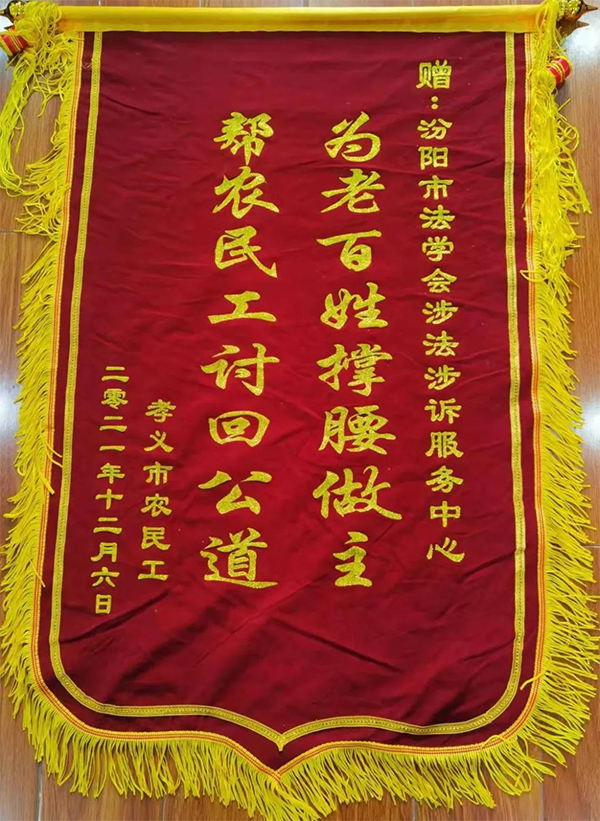 赠：汾阳市法学会涉法涉诉服务中心
为老百姓撑腰做主
帮农民工讨回公道
孝义市农民工
二零二一年十二月六日